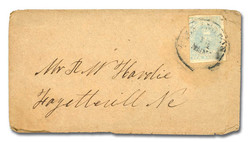 Mr R W Hardie
Fayettevill Nc